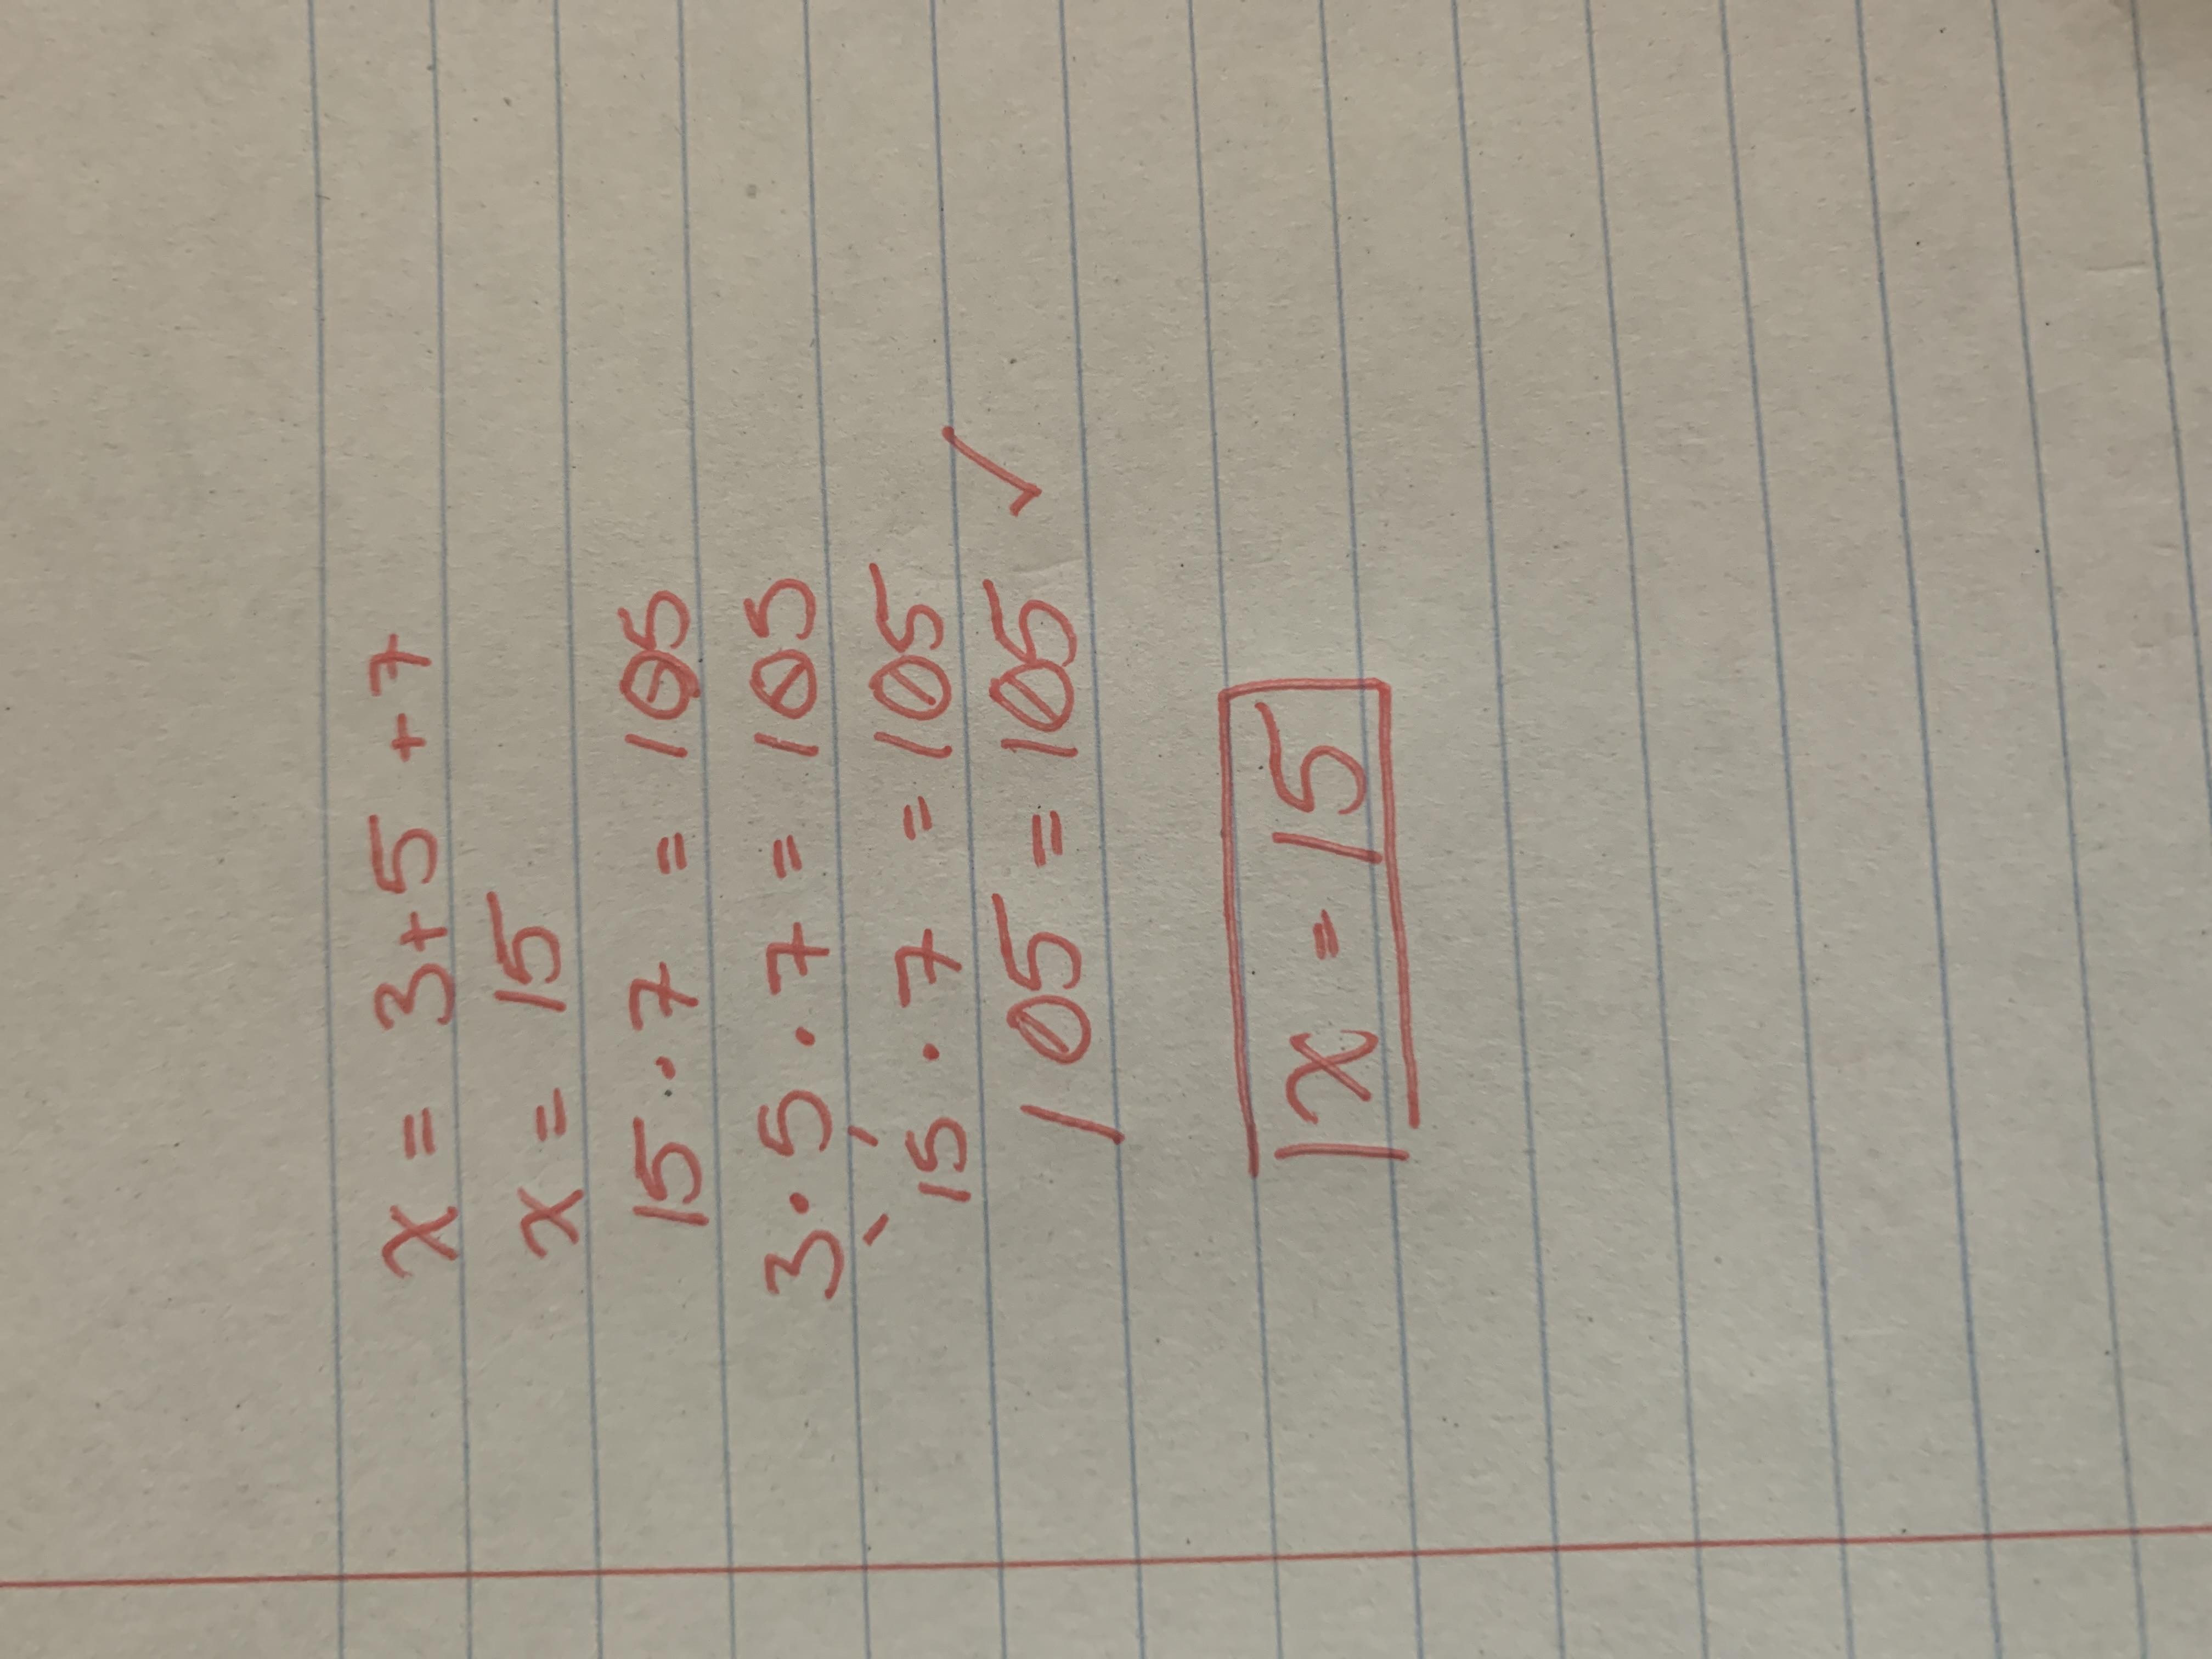 x = 3+5 +7
x = 15
15 · 7 = 105
3 · 5 · 7 = 105
15 · 7 = 105
105 = 105 ✓
x = 15